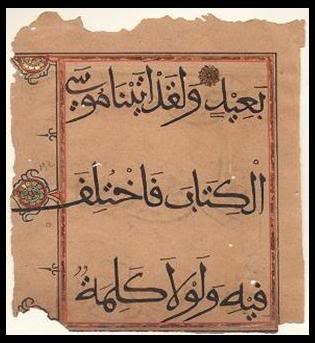 بَعِيدٍ وَلَقَدْ اٰتَيْنَا مُوسَى
الْكِتَابَ فَاخْتُلِفَ
فِيهِ وَلَوْلَا كَلِمَةٌ